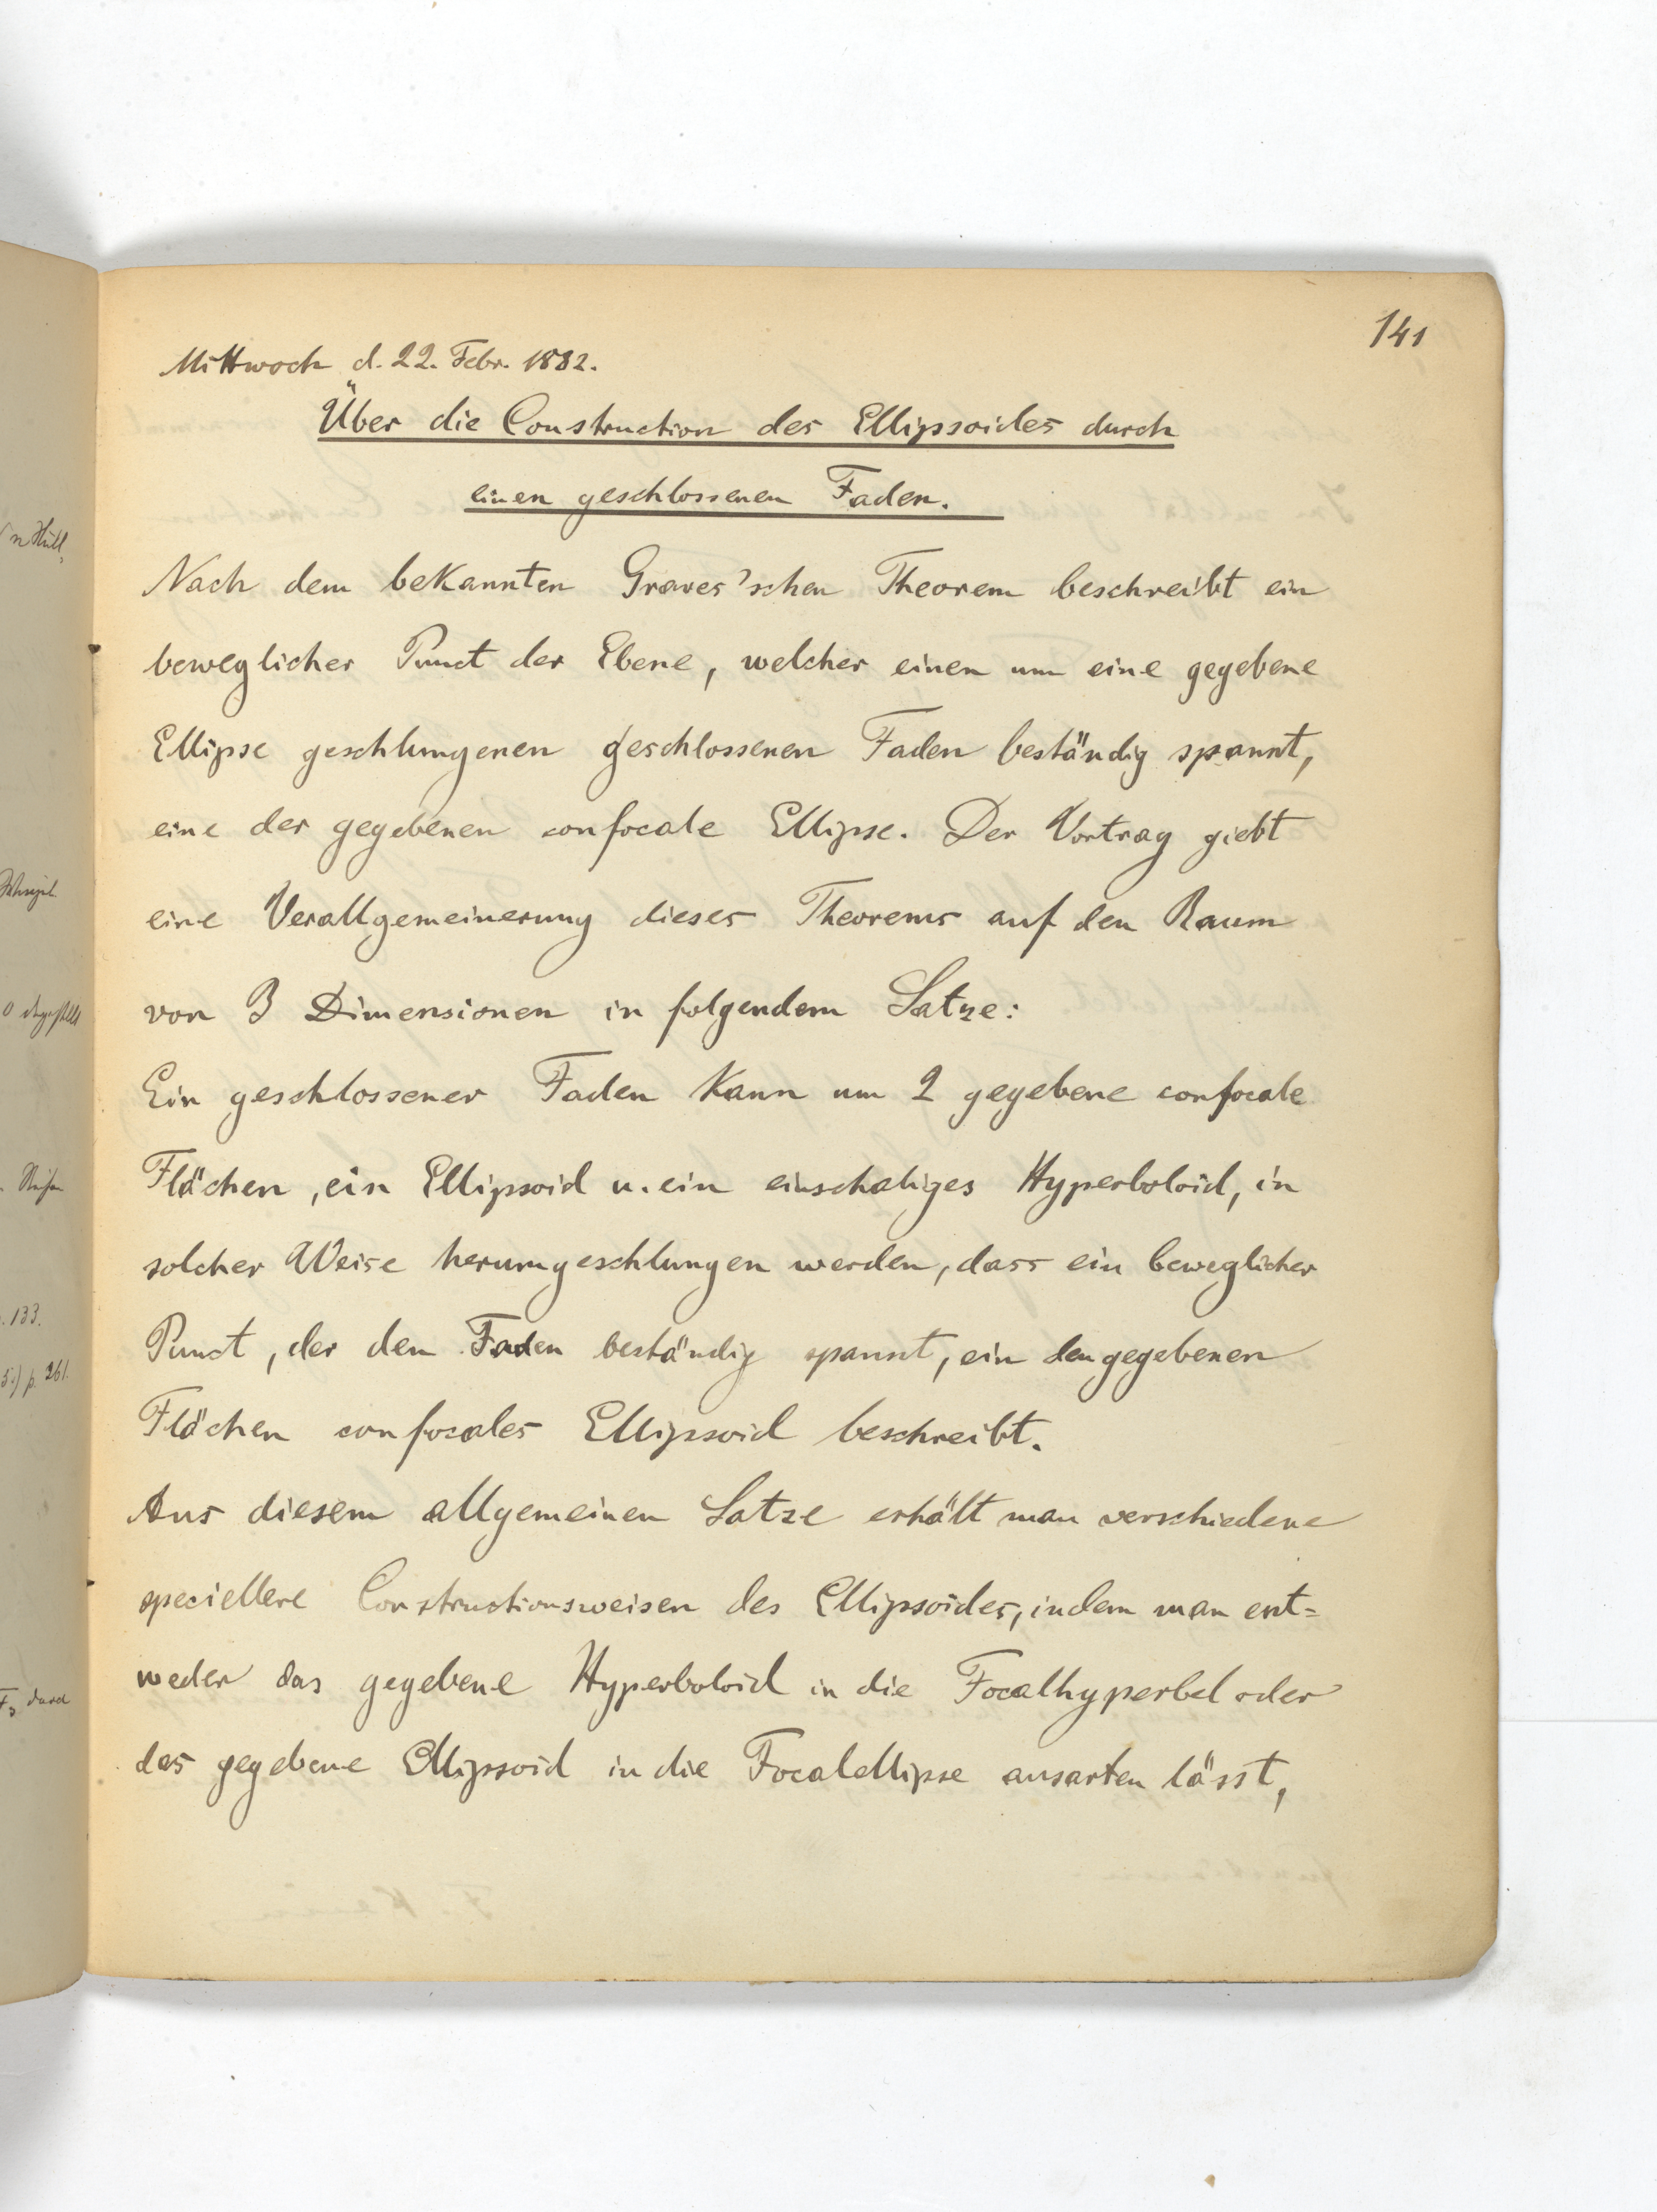 141
Mittwoch d. 22. Febr. 1882.
Über die Construction des Ellipsoides durch
einen geschlossenen Faden.
Nach dem bekannten Graves'schen Theorem beschreibt ein
beweglicher Punct der Ebene, welcher einen um eine gegebene
Ellipse geschlungenen geschlossenen Faden beständig spannt,
eine der gegebenen confocale Ellipse. Der Vortrag giebt
eine Verallgemeinerung dieses Theorems auf den Raum
von 3 Dimensionen in folgendem Satze:
Ein geschlossener Faden kann um 2 gegebene confocale
Flächen, ein Ellipsoid u. ein einschaliges Hyperboloid, in
solcher Weise herumgeschlungen werden, dass ein beweglicher
Punct, der den Faden beständig spannt, ein den gegebenen
Flächen confocales Ellipsoid beschreibt.
Aus diesem allgemeinen Satze erhält man verschiedene
speciellere Constructionsweisen des Ellipsoides, indem man ent=
weder das gegebene Hyperboloid in die Focalhyperbel oder
das gegebene Ellipsoid in die Focalellipse ausarten lässt,
133.
p. 261.